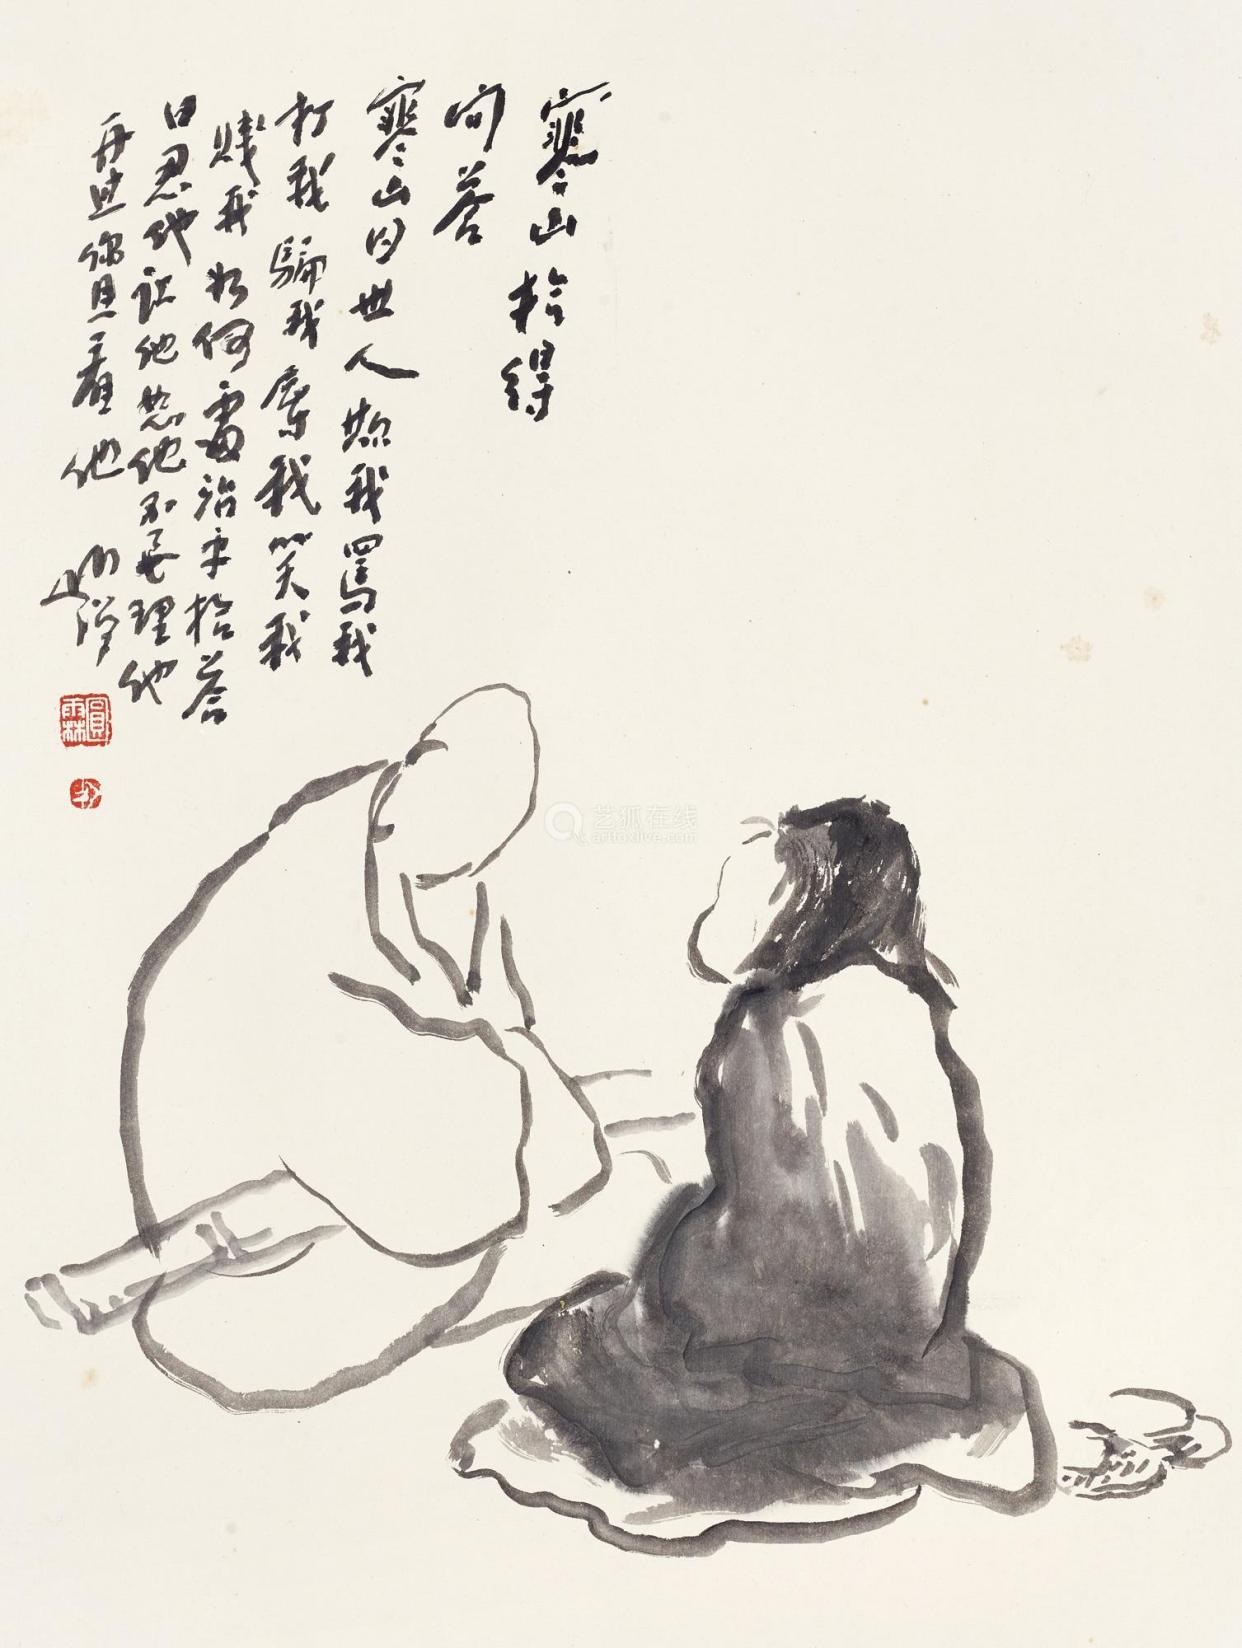 寒山拾得
问答
寒山曰世人欺我罵我
打我騙我我笑我
賤我如何處治乎拾答
曰忍他让他恕他不要理他
再过你且看他
圓霖
艺狐在线
artfoxlive.com